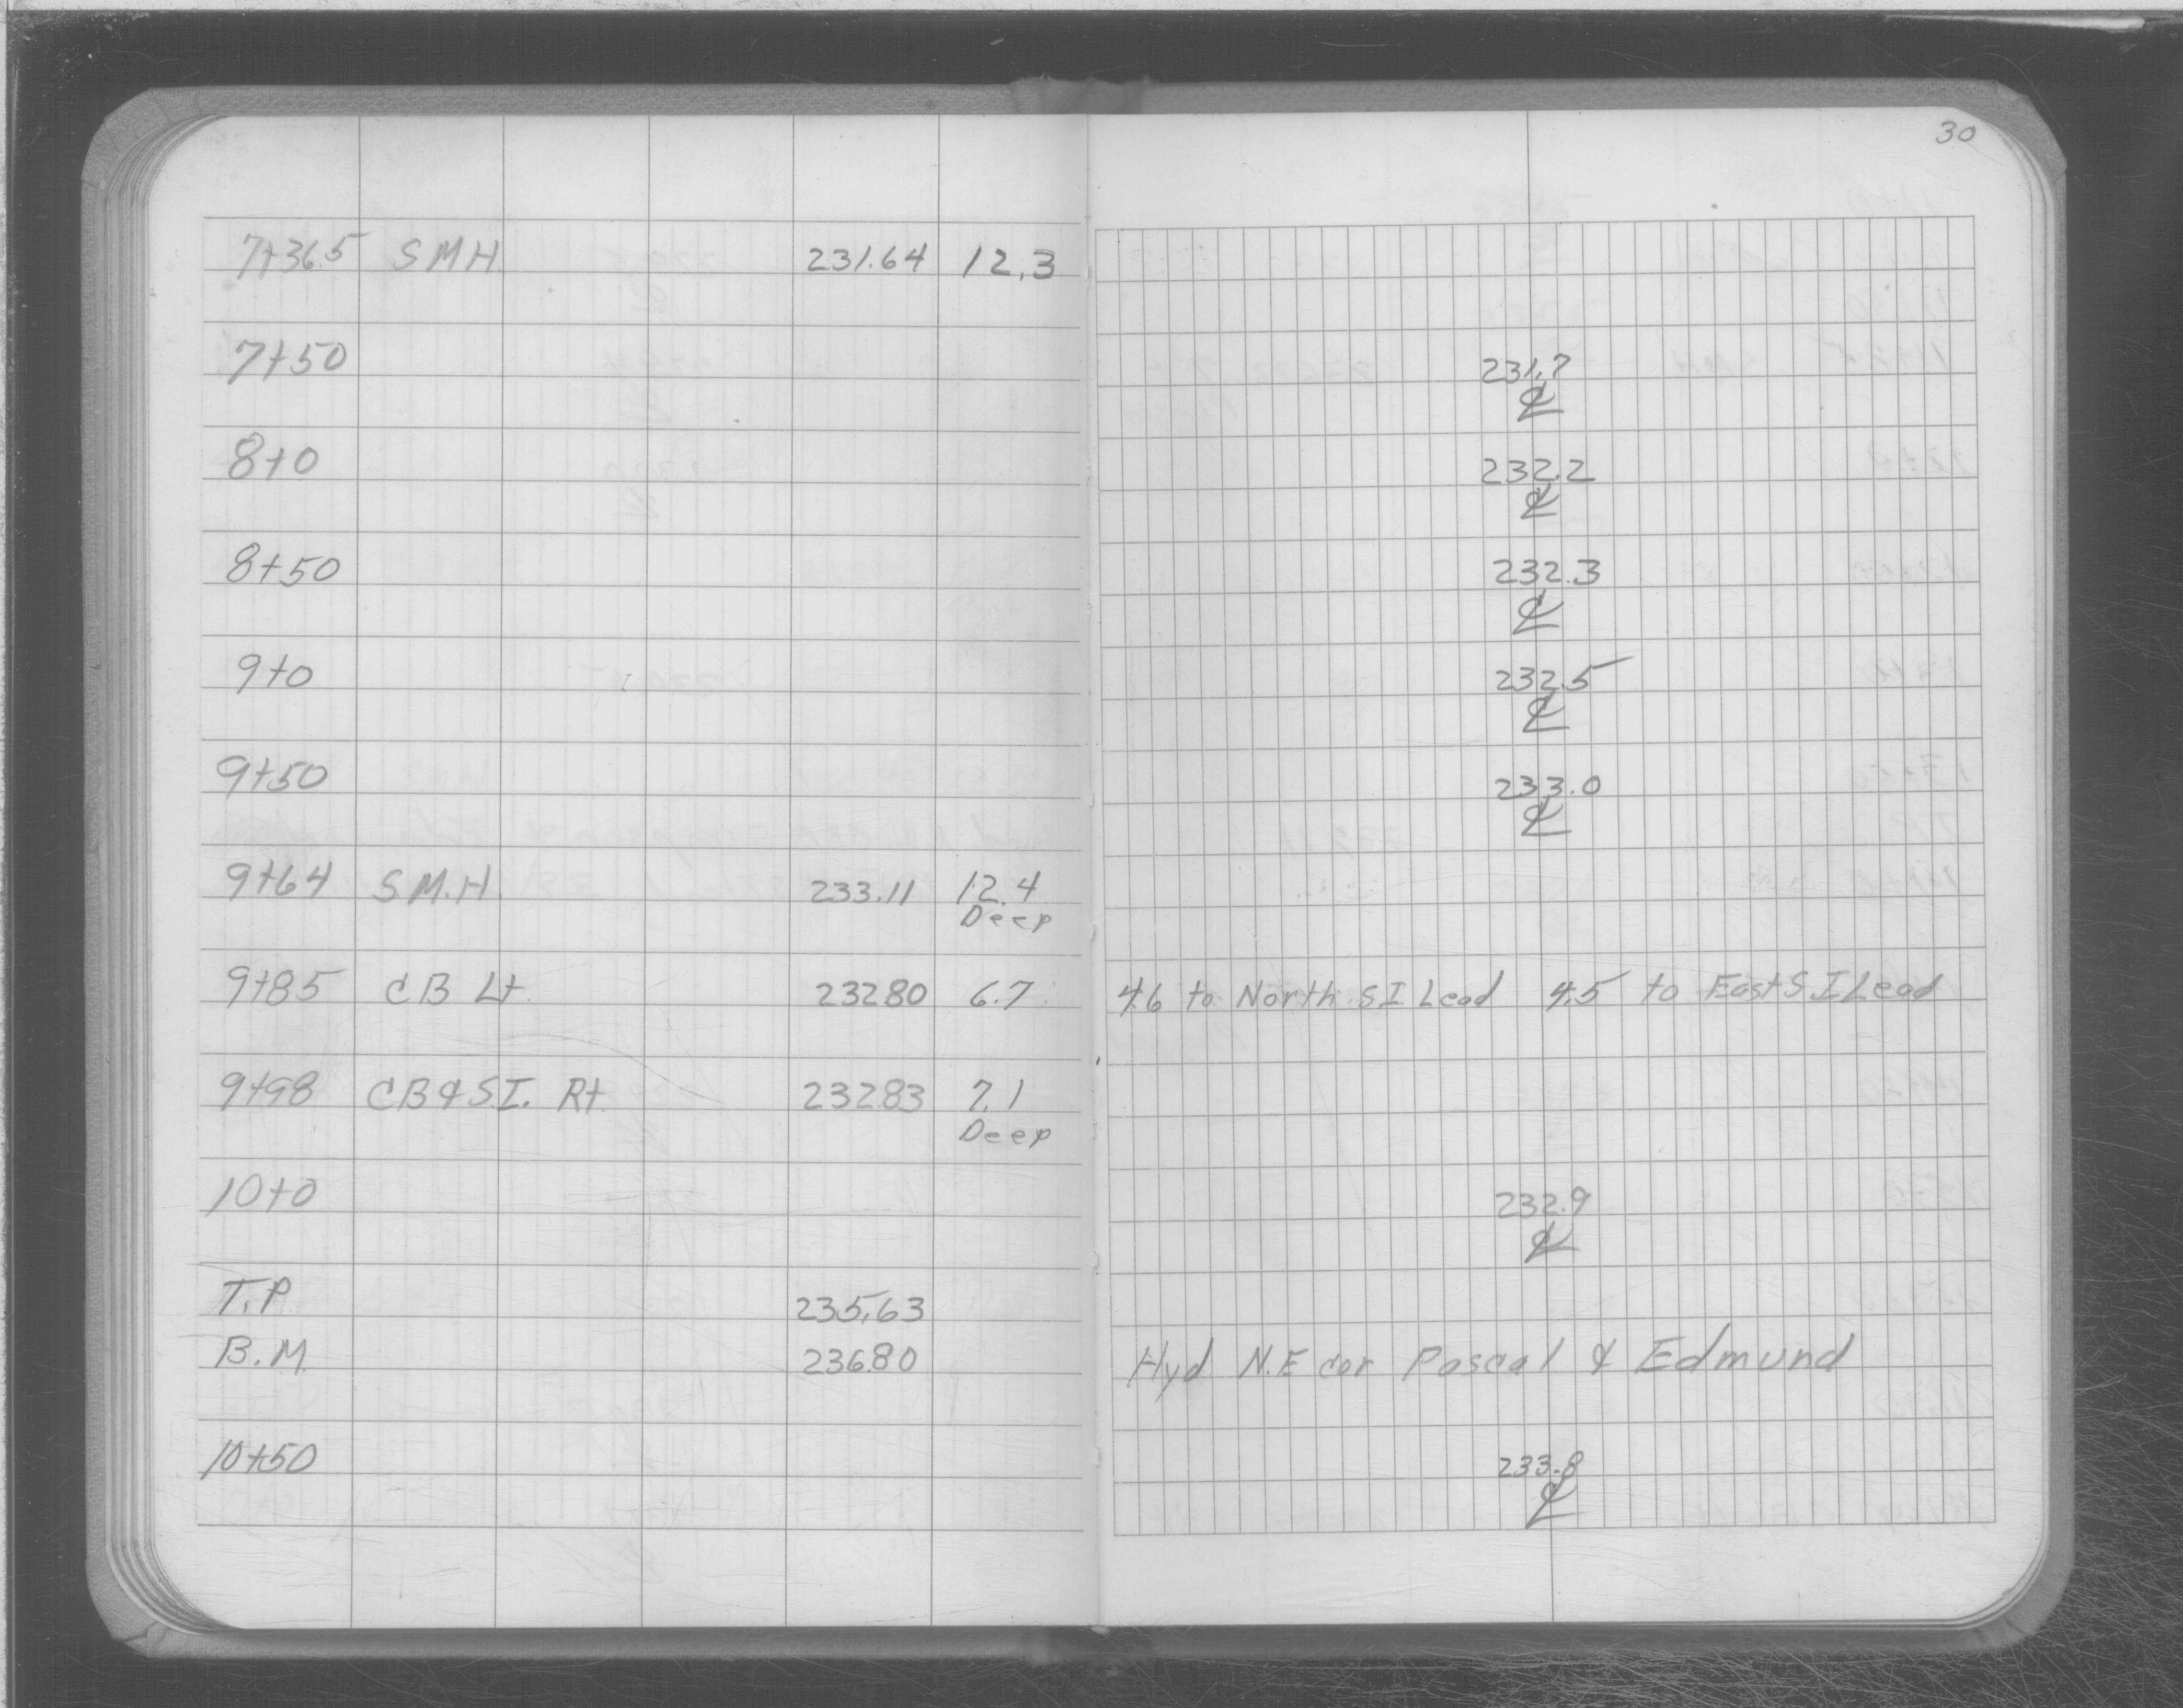 30
7+36.5 S M H. 231.64 12.3
7+50 231.7
℄
8+0 232.2
℄
8+50 232.3
℄
9+0 232.5
℄
9+50 233.0
℄
9+64 S.M.H. 233.11 12.4
Deep
9+85 CB Lt. 232.80 6.7 4.6 to North S.I. Lead 4.5 to East S.I Lead
9+98 CB & S.I. Rt. 232.83 7.1
Deep
10+0 232.9
℄
T.P. 235.63
B.M. 236.80 Hyd. N.E cor Pascal & Edmund
10+50 233.8
℄